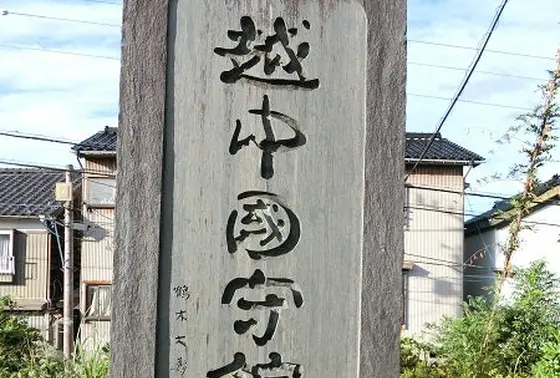 越中國守館
鶴木大壽